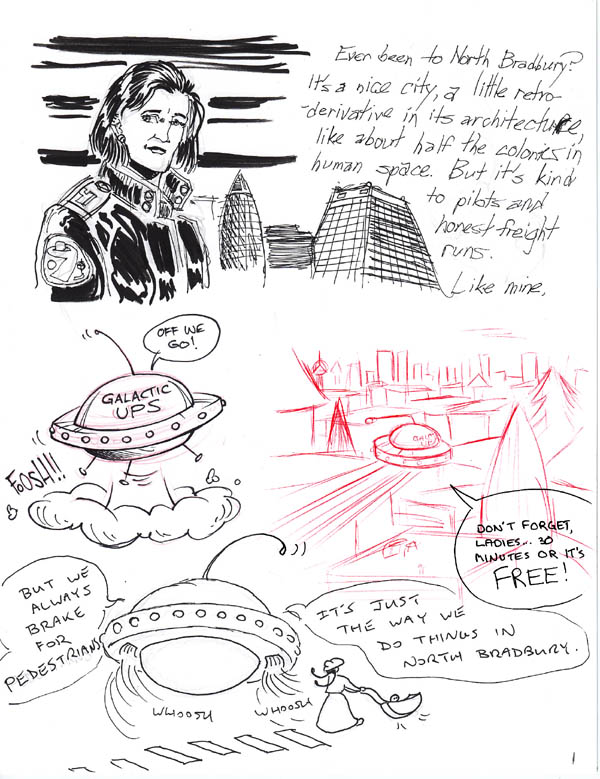 Ever been to North Bradbury?
It's a nice city, a little retro-
-derivative in its architecture,
like about half the colonies in
human space. But it's kind
to pilots and
honest freight
runs.
Like mine.
OFF WE
GO!
GALACTIC
UPS
FOOSH!!!
GALACTIC
UPS
DON'T FORGET,
LADIES... 30
MINUTES OR IT'S
FREE!
BUT WE
ALWAYS
BRAKE
FOR
PEDESTRIANS
IT'S JUST
THE WAY WE
DO THINGS IN
NORTH BRADBURY.
WHOOSH WHOOSH
1